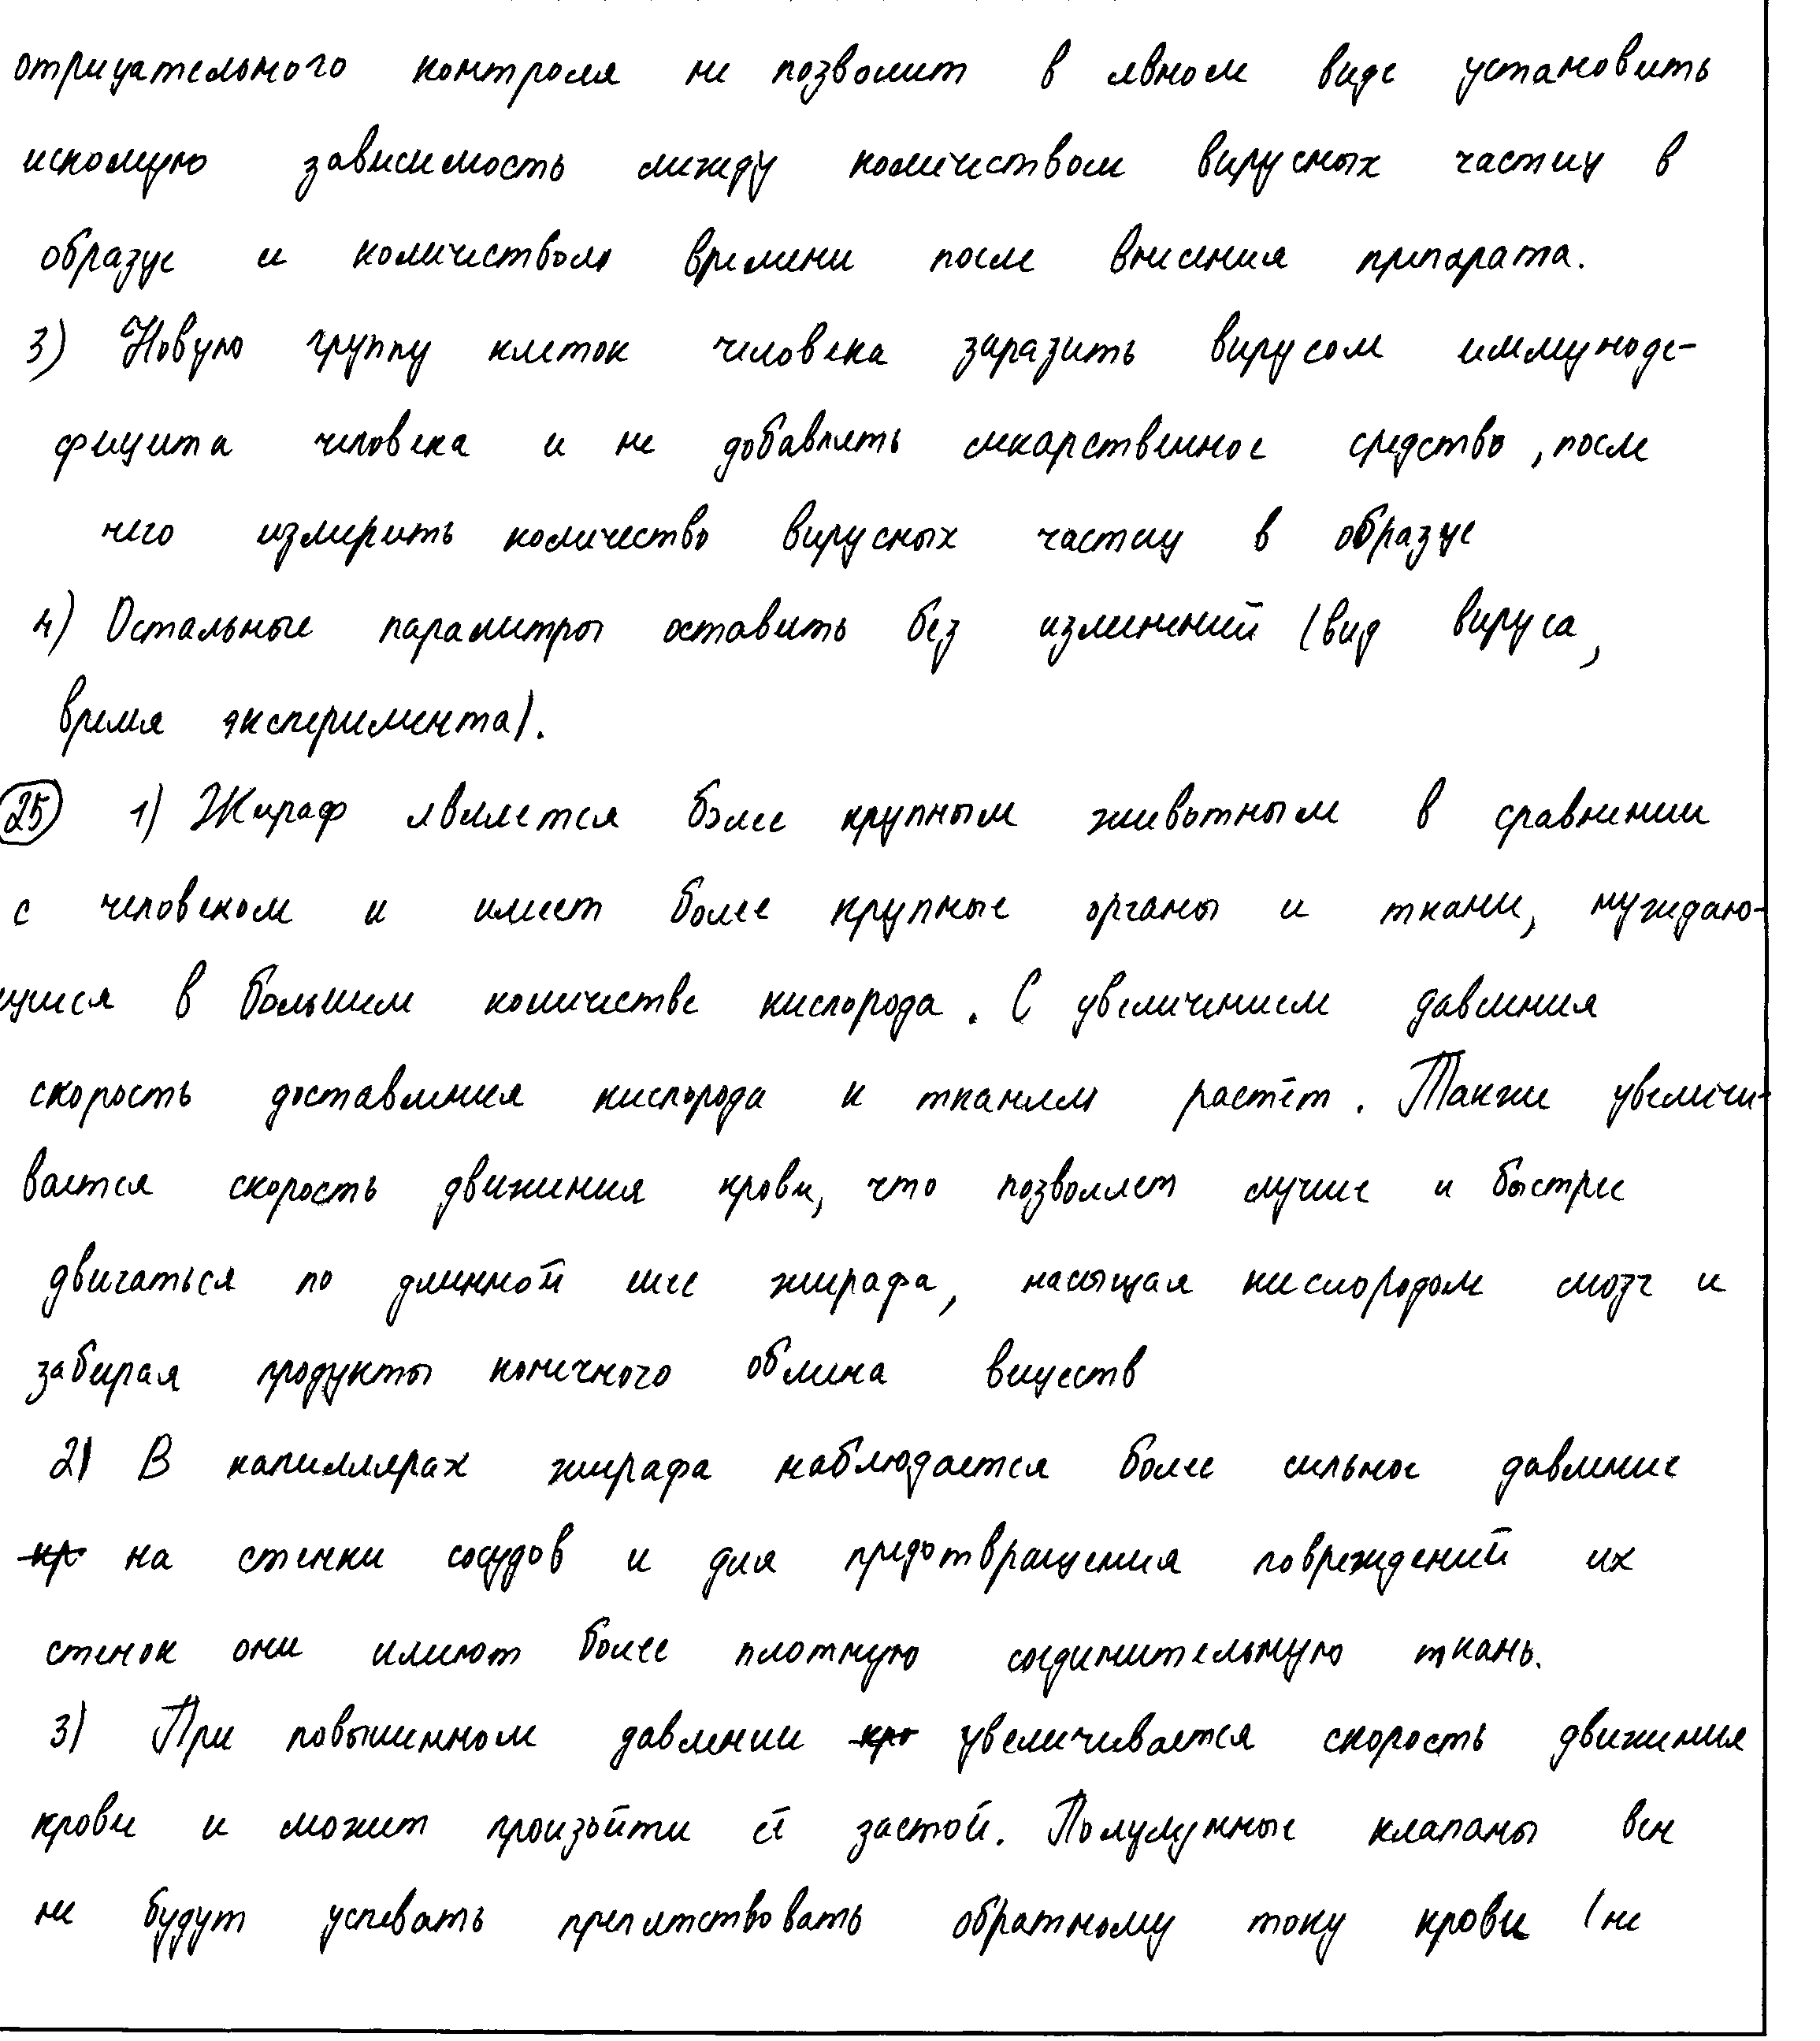 отрицательного контроля не позволит в явном виде установить
искомую зависимость между количеством вирусных частиц в
образце и количеством времени после внесения препарата.
3) Новую группу клеток человека заразить вирусом иммуноде-
фицита человека и не добавлять лекарственное средство, после
чего измерить количество вирусных частиц в образце
4) Остальные параметры оставить без изменений (вид вируса,
время эксперимента).
25 1) Жираф является более крупным животным в сравнении
с человеком и имеет более крупные органы и ткани, нуждаю-
щиеся в большем количестве кислорода. С увеличением давления
скорость доставления кислорода к тканям растёт. Также увеличи-
вается скорость движения крови, что позволяет лучше и быстрее
двигаться по длинной шее жирафа, насыщая кислородом мозг и
забирая продукты конечного обмена веществ
2) В капиллярах жирафа наблюдается более сильное давление
на стенки сосудов и для предотвращения повреждений их
стенок они имеют более плотную соединительную ткань.
3) При повышенном давлении увеличивается скорость движения
крови и может произойти её застой. Полулунные клапаны вен
не будут успевать препятствовать обратному току крови (не